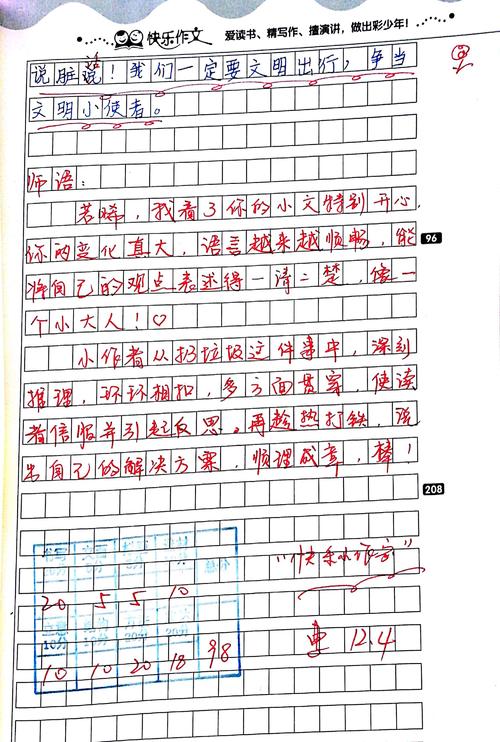 快乐作文
爱读书、精写作、擅演讲，做出彩少年！
说脏话！我们一定要文明出行，争当
文明小使者。
师语：
若晞，我看了你的小文特别开心，
你的变化真大，语言越来越顺畅，能
96
将自己的观点表述得一清二楚，像一
个小大人！♡
小作者从扔垃圾这件事中，深刻
推理，环环相扣，多方面贯穿，使读
者信服并引起反思。再趁热打铁，说
出自己的解决方案，顺理成章，棒！
208
“快乐小作家”
20 5 5 10
10 10 20 18 98
12.4